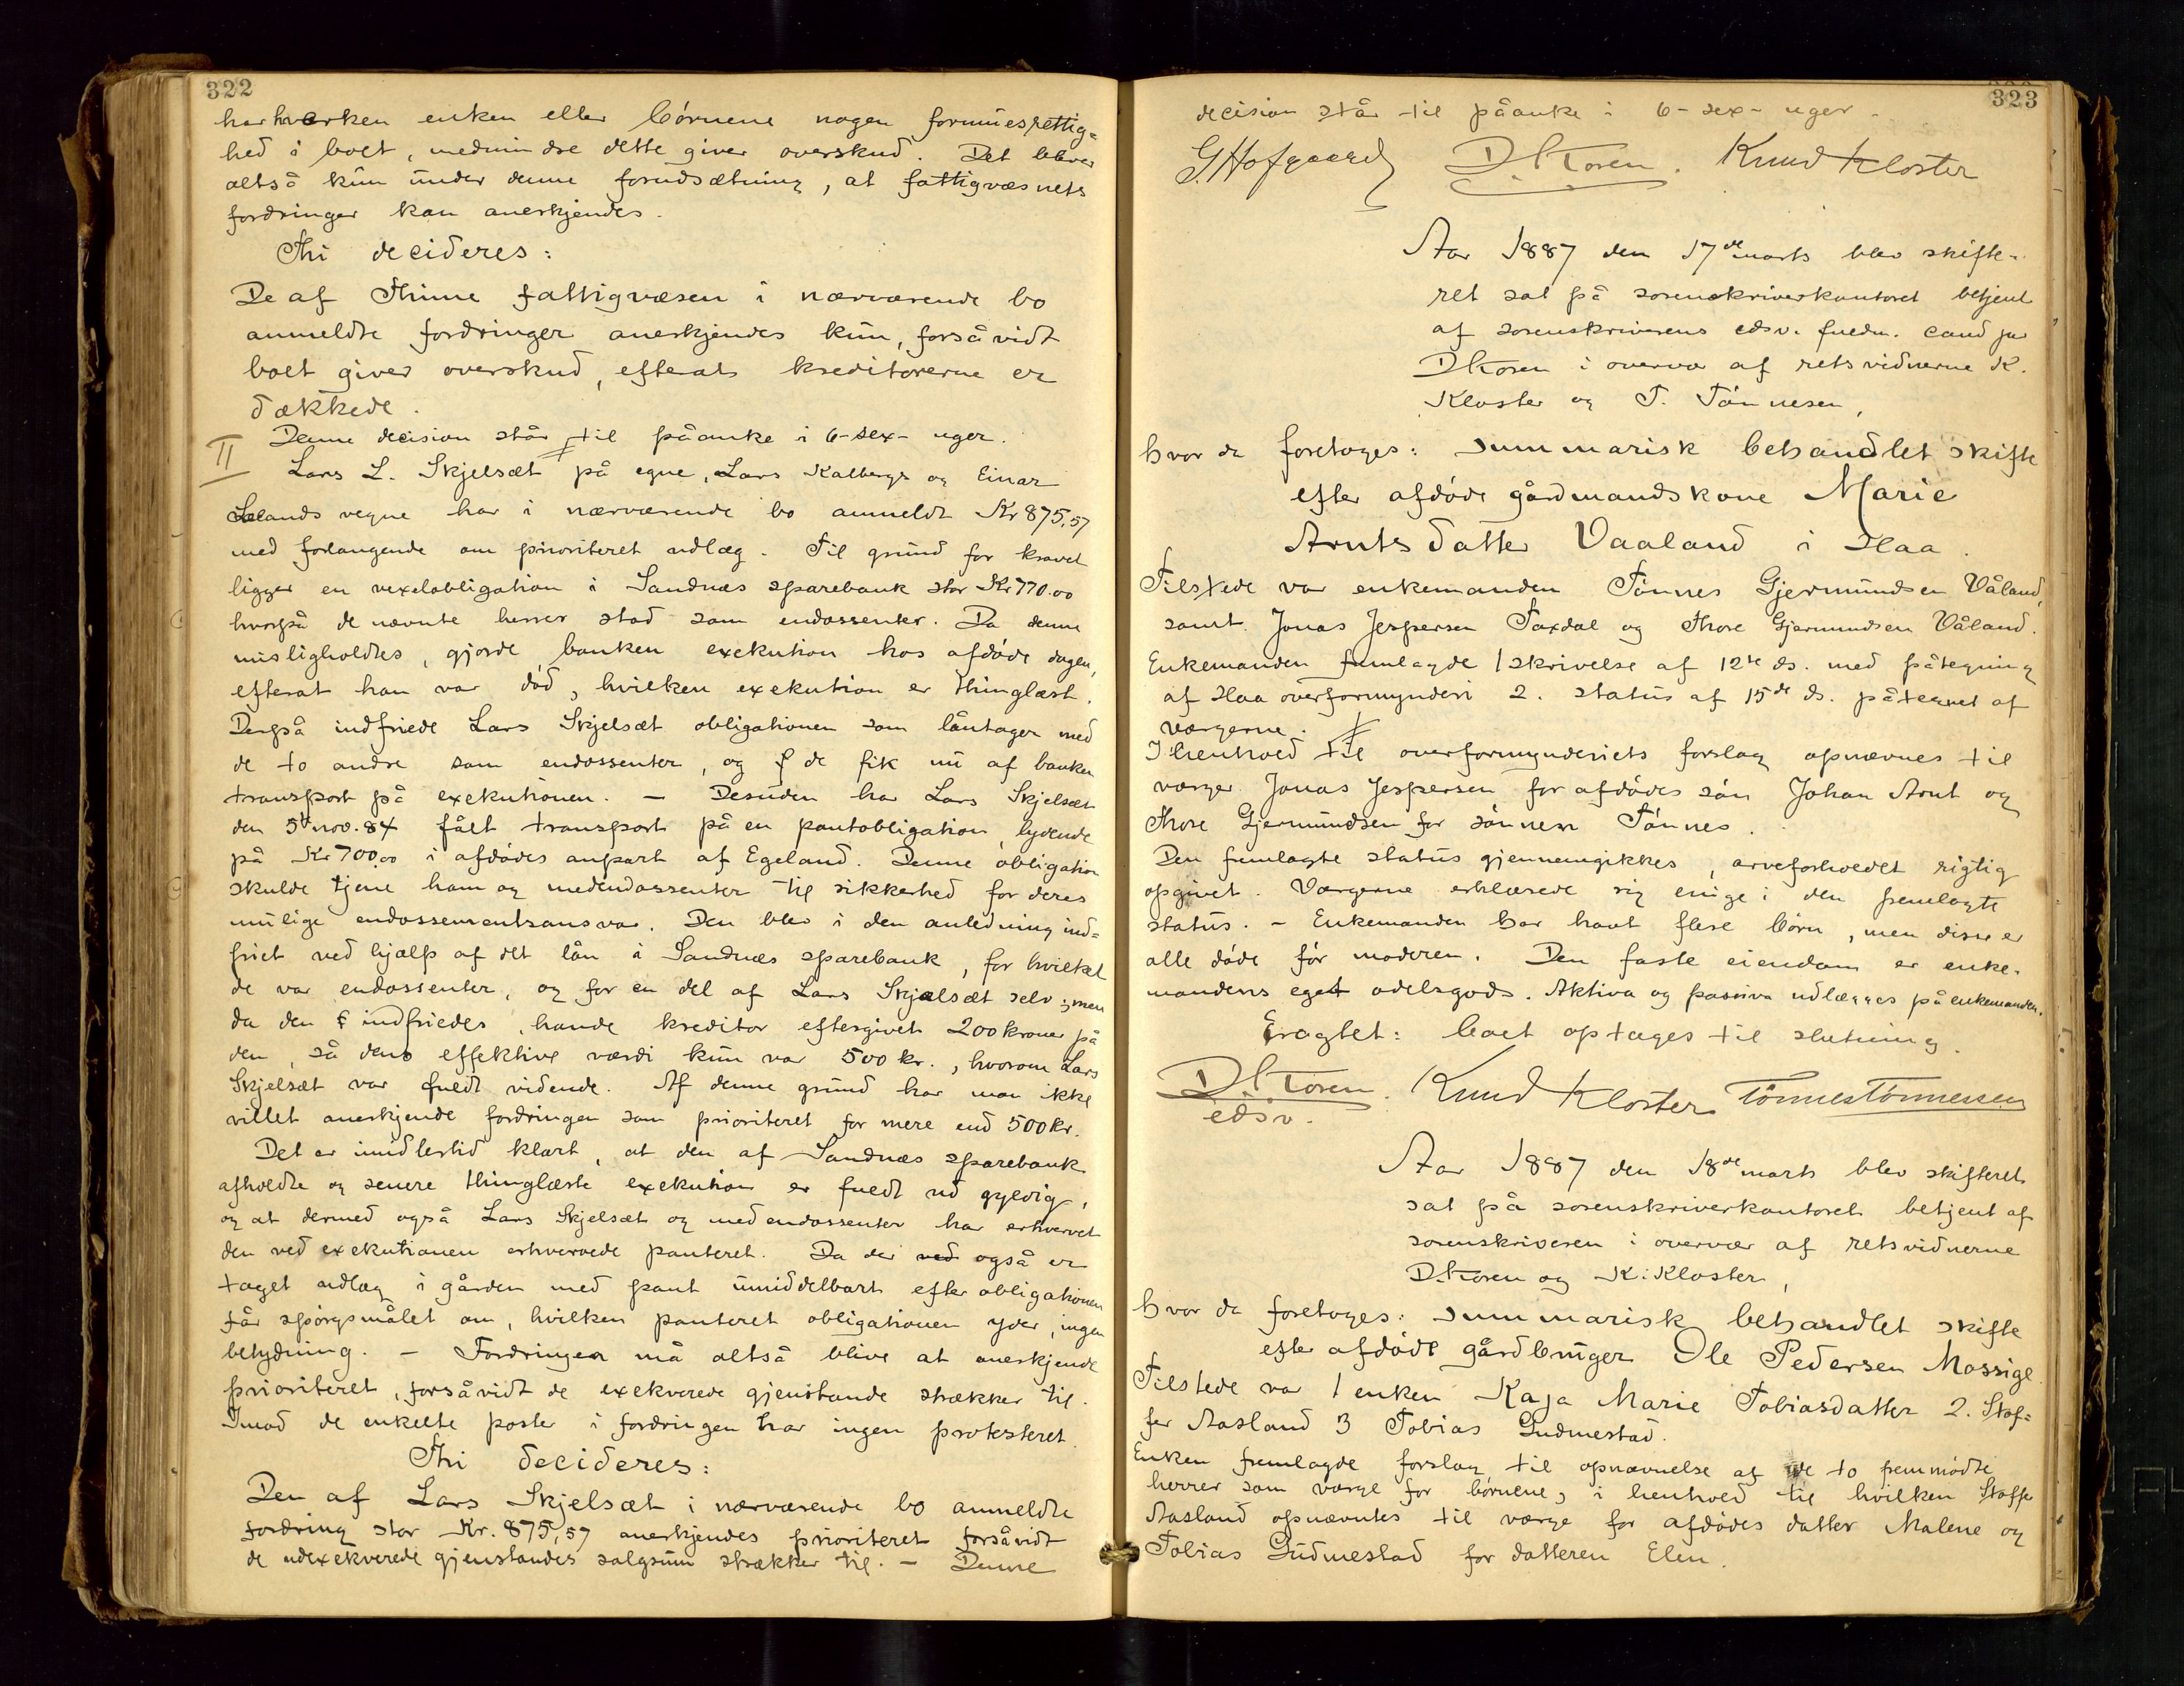 322
har hverken enken eller börnene nogen formuesrettig=
hed i boet, medmindre dette giver overskud. Det bliver
altså kun under denne forudsætning, at fattigvæsnets
fordringer kan anerkjendes.
Thi decideres:
De af Thime fattigvæsen i nærværende bo
anmeldte fordringer anerkjendes kun, forsåvidt
boet giver overskud, efterat kreditorerne er
dækkede.
Denne decision står til påanke i 6-sex- uger.
II
Lars L. Skjelsæt på egne, Lars Kalbergs og Einar
Lælands vegne har i nærværende bo anmeldt Kr 875,57
med forlangende om prioriteret udlæg. Til grund for kravet
ligger en vexelobligation i Sandnæs sparebank stor Kr 770.00
hvorpå de nævnte herrer stod som endossenter. Da denne
misligholdtes, gjorde banken exekution hos afdöde dagen,
efterat han var död, hvilken exekution er thinglæst.
Derpå indfriede Lars Skjelsæt obligationen som låntager med
de to andre som endossenter, og de fik nu af banken
transport på exekutionen. — Desuden har Lars Skjelsæt
den 5te nov. 84 fået transport på en pantobligation, lydende
på Kr 700,00 i afdödes anpart af Egeland. Denne obligation
skulde tjene ham og medendossenter til sikkerhed for deres
mulige endossementsansvar. Den blev i den anledning ind=
friet ved hjælp af det lån i Sandnæs sparebank, for hvilket
de var endossenter, og for en del af Lars Skjelsæt selv; men
da den indfriedes, havde kreditor eftergivet 200 kroner på
den, så dens effektive værdi kun var 500 kr., hvorom Lars
Skjelsæt var fuldt vidende. Af denne grund har man ikke
villet anerkjende fordringen som prioriteret for mere end 500 kr.
Det er imidlertid klart, at den af Sandnæs sparebank
afholdte og senere thinglæste exekution er fuldt ud gyldig,
og at dermed også Lars Skjelsæt og medendossenter har erhvervet
den ved exekutionen erhvervede panteret. Da der ved også er
taget udlæg i gården med pant umiddelbart efter obligationen
får spörgsmålet om, hvilken panteret obligationen yder, ingen
betydning. — Fordringen må altså blive at anerkjende
prioriteret, forsåvidt de exekverede gjenstande strækker til.
Imod de enkelte poster i fordringen har ingen protesteret.
Thi decideres:
Den af Lars Skjelsæt i nærværende bo anmeldte
fordring stor Kr. 875,57 anerkjendes prioriteret forsåvidt
de udexekverede gjenstandes salgsum strækker til. — Denne
323
decision står til påanke i 6-sex- uger.
G. Hofgaard D. Koren. Knud Kloster
Aar 1887 den 17de marts blev skifte-
ret sat på sorenskriverkontoret betjent
af sorenskriverens edsv. fuldm. cand jur
D Koren i overvær af retsvidnerne K.
Kloster og T. Tönnesen,
hvor da foretoges: summarisk behandlet skifte
efter afdöde gårdmandskone Marie
Arntsdatter Vaaland i Haa.
Tilstede var enkemanden Tönnes Gjermundsen Våland,
samt Jonas Jespersen Taxdal og Thore Gjermundsen Våland.
Enkemanden fremlagde 1 skrivelse af 12te ds. med påtegning
af Haa overformynderi 2. status af 15de ds. påtegnet af
værgerne.
I henhold til overformynderiets forslag opnævnes til
værger Jonas Jespersen for afdödes sön Johan Arnt og
Thore Gjermundsen for sönnen Tönnes.
Den fremlagte status gjennemgikkes, arveforholdet rigtig
opgivet. Værgerne erklærede sig enige i den fremlagte
status. – Enkemanden har havt flere börn, men disse er
alle döde för moderen. Den faste eiendom er enke-
mandens eget odelsgods. Aktiva og passiva udlægges på enkemanden.
Eragtet: boet optages til slutning.
D. Koren. Knud Kloster Tönnes Tönnessen
edsv.
Aar 1887 den 18de marts blev skifteret
sat på sorenskriverkontoret betjent af
sorenskriveren i overvær af retsvidnerne
D. Koren og K. Kloster,
hvor da foretoges: summarisk behandlet skifte
efter afdöde gårdbruger Ole Pedersen Mossige
Tilstede var 1 enken Kaja Marie Tobiasdatter 2. Stof=
fer Aasland 3 Tobias Gudmestad.
Enken fremlagde forslag til opnævnelse af de to fremmödte
herrer som værge for börnene, i henhold til hvilken Stoffer
Aasland opnævntes til værge for afdödes datter Malene og
Tobias Gudmestad for datteren Elen.